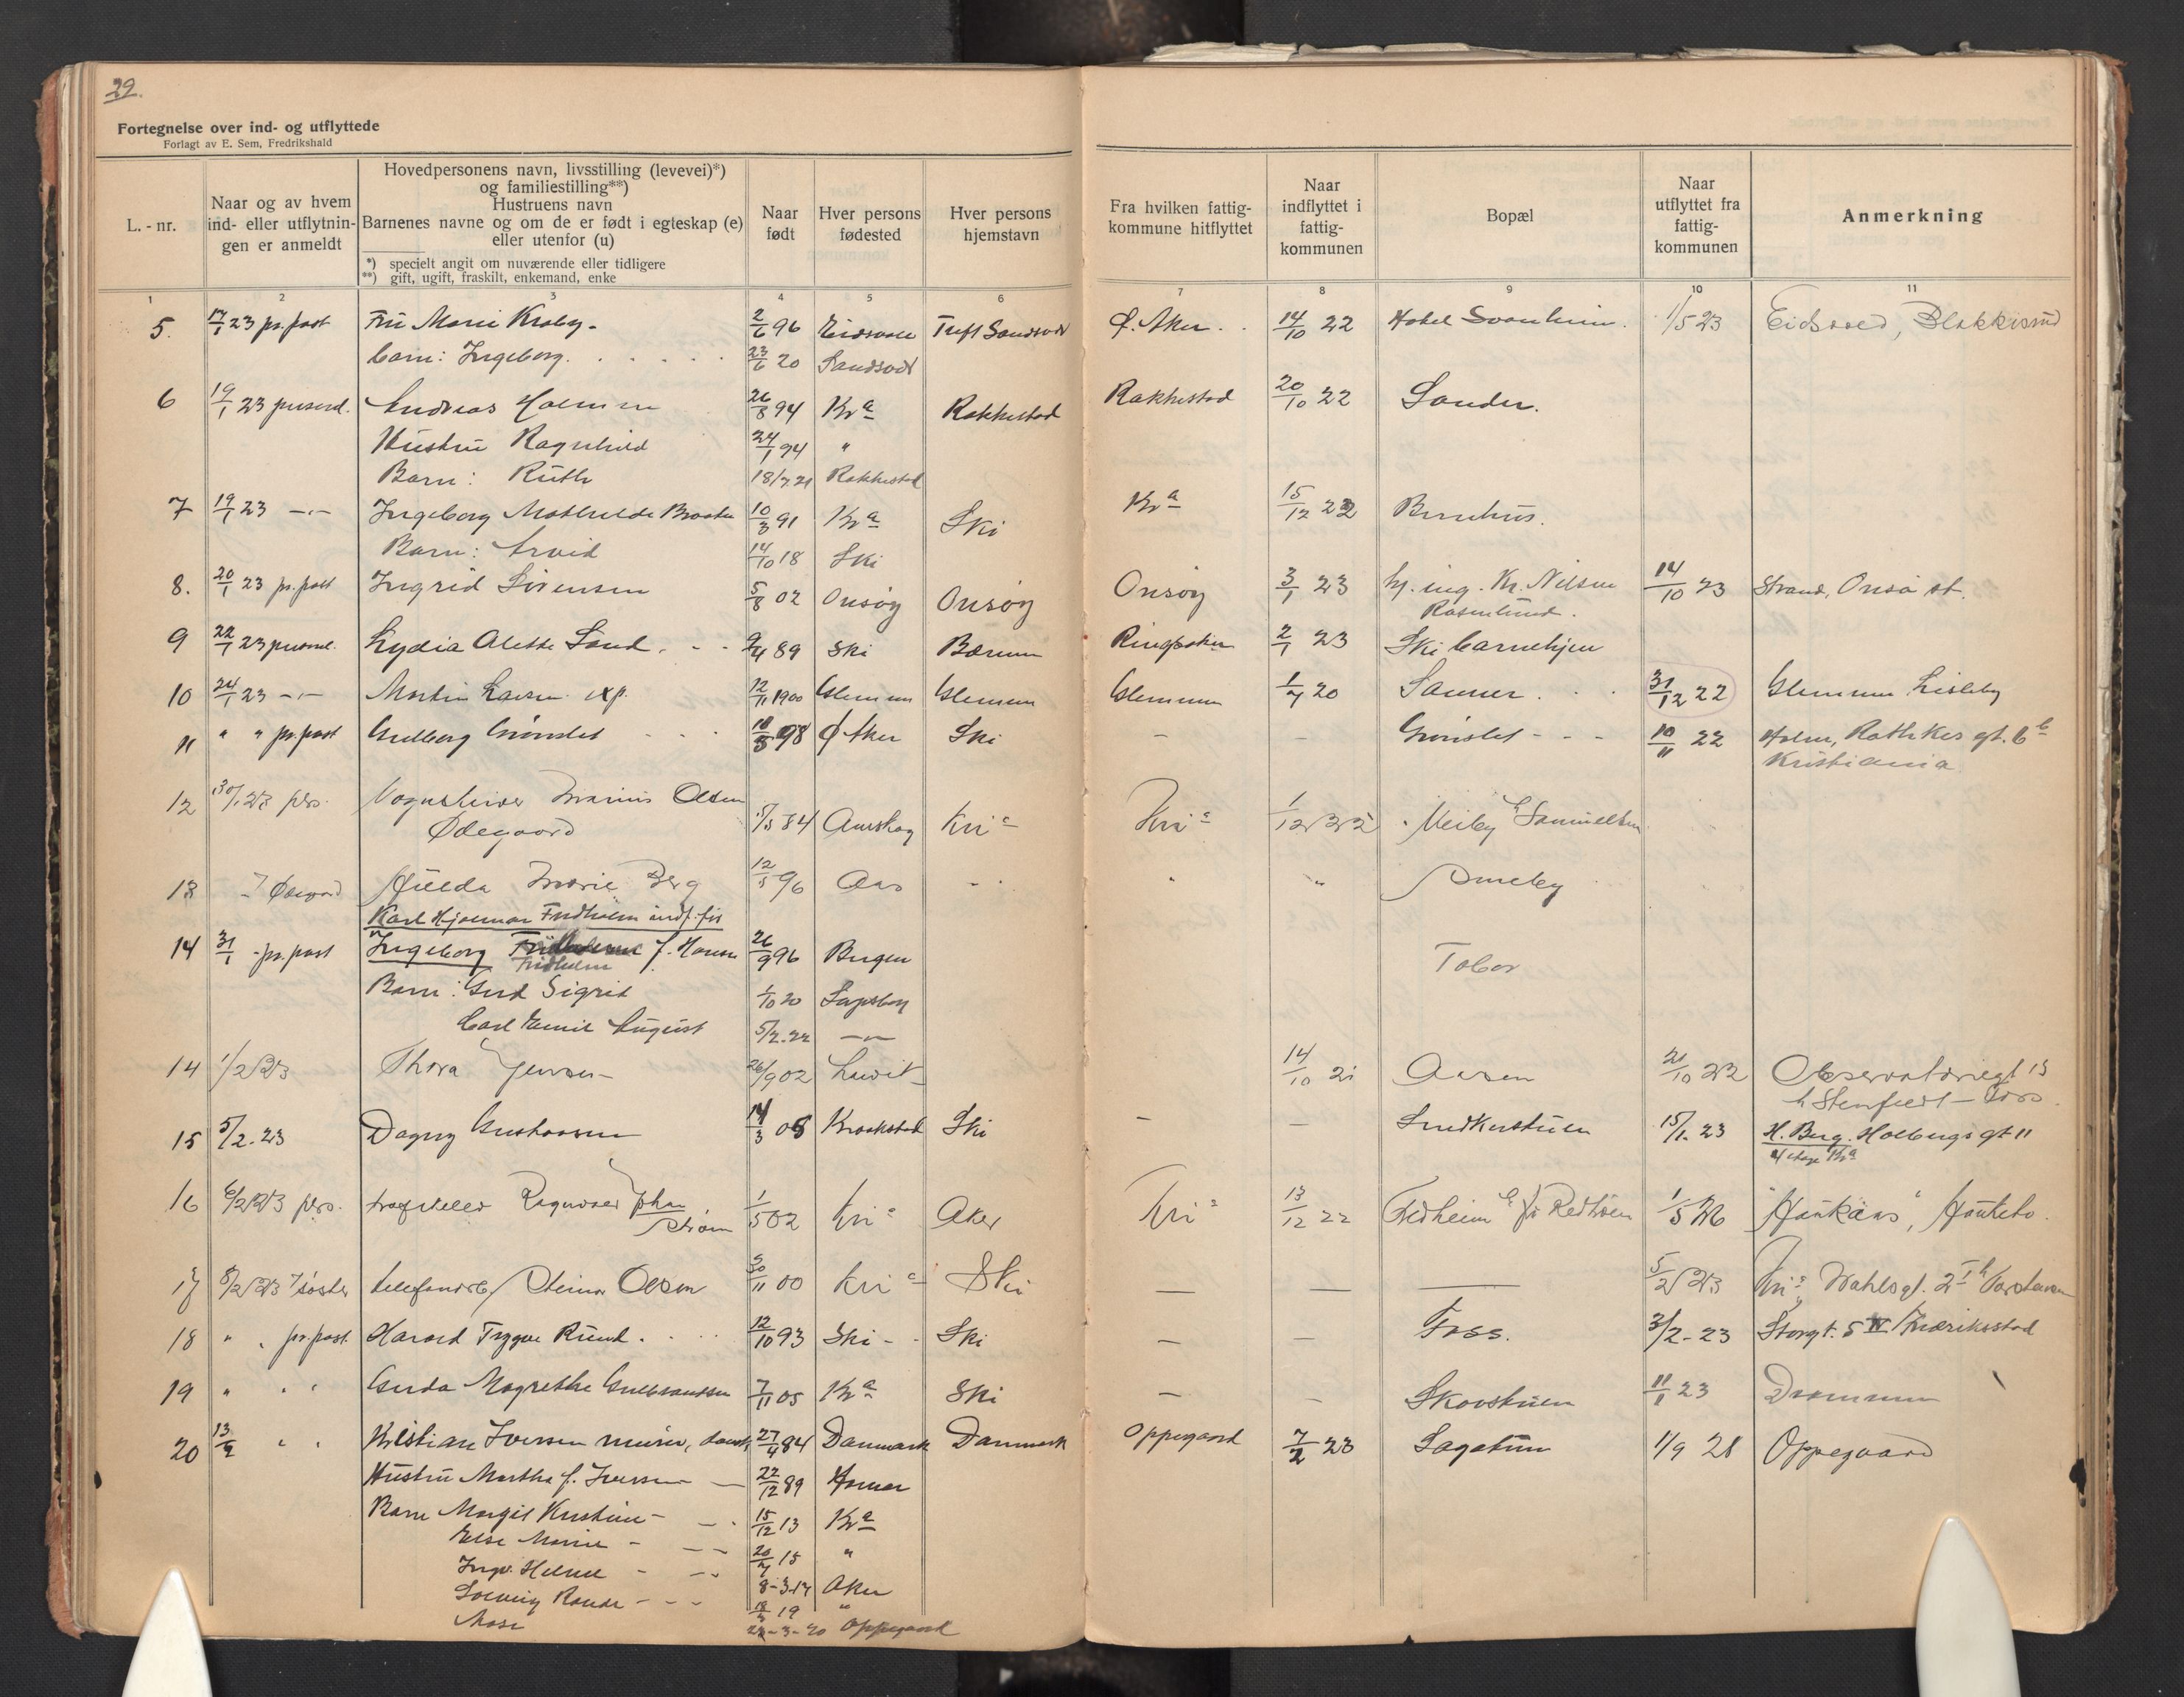 29.
Fortegnelse over ind- og utflyttede
Forlagt av E. Sem, Fredrikshald
L.-nr.
Naar og av hvem
ind- eller utflytnin-
gen er anmeldt
Hovedpersonens navn, livsstilling (levevei)*)
og familiestilling**)
Hustruens navn
Barnenes navne og om de er født i egteskap (e)
eller utenfor (u)
*) specielt angit om nuværende eller tidligere
**) gift, ugift, fraskilt, enkemand, enke
Naar
født
Hver persons
fødested
Hver persons
hjemstavn
Fra hvilken fattig-
kommune hitflyttet
Naar
indflyttet i
fattig-
kommunen
Bopæl
Naar
utflyttet fra
fattig-
kommunen
Anmerkning
1 2 3 4 5 6 7 8 9 10 11
5. 17/1 23 pr. post Fru Marie Kraby. 2/6 96 Eidsvold Aker. 14/10 22 Hotel Svanheim. 1/5 23 Eidsvold,
barn: Ingeborg. 23/6 20
6 19/1 23 personl. Andreas Holmsen 26/8 94 Kra Rakkestad Rakkestad 20/10 22 Sander.
Hustru Ragnhild 24/1 94 "
Barn: Ruth 18/7.21 Rakkestad
7 19/1 23 -"- Ingeborg Mathilde Braaten 10/3 91 Kra Ski Kra 15/12 22
Barn: Arvid 14/10 18 Ski
8. 20/1 23 pr. post Ingrid Sørensen 5/8 02 Onsøy Onsøy Onsøy 3/1 23 ing. Kr. Nilsen 14/10 23 Strand, Onsø st.
Rosenlund.
9 22/1 23 personl. Lydia Alette Sand 89 Ski Bærum Ringsaker 2/1 23 Ski barnehjem
10 24/1 23 -"- Martin Larsen exp. 12/11 1900 Glemmen Glemmen Glemmen 1/7 20 Sanner. 31/12 22 Glemmen Lisleby
11 " " pr. post Gudborg Grønslet 98 Aker Ski - - Grønslet 10/11 22 Holm, Rathkes gt. 6 b
Kristiania
12 30/1 23 pers. Marius Olsen 84 Aurskog Kria Kria 1/12 22 Samuelsen
Ødegaard
13 Hilda Marie Berg 12/5 96 Aas " " Smeby
Karl Hjalmar Fridholm indf. før
14 31/1 - pr. post Ingeborg f. Hansen 26/9 96 Bergen Tabor
Fridholm
Barn: Gerd Sigrid 1/10 20 Sarpsborg
Carl Emil August 5/2.22 -"-
14 1/2 23 Thora Jensen 26/9 02 14/10 21 Aasen 22 Observatoriegt 13
15 5/2.23 Dagny Gustavsen 14/3 08 Kraakstad Ski - - 15/1.23 H. Berg. Holbergs gt 11
4 etage Kra
16 6/2 23 pers. Ragnvald Johan 1/5 02 Kria Aker Kria 13/12 22 Fredheim 1/5 26 "Haukaas", Hauketo.
Strøm
17 23 søster Olsen 30/11 00 Kria Ski — — — 5/2 23 Kria Dahlsgt.
18 " " pr. post Harald Trygve Rund. 12/10 93 Ski Ski — — Foss. 3/2-23 Storgt. 5 IV Fredriksstad
19 " " " Gerda Magrethe Gulbrandsen 7/11 05 Kra Ski - - Skovstuen 11/1 23 Drammen
20 13/2 " " Kristian Iversen murer, dansk 27/4 84 Danmark Danmark Oppegaard 7/2 23 Sagatun 1/9 28 Oppegaard
Hustru Martha f. Iversen 22/12 89
Barn Margit Kristine - 15/12 13 Kra
Else Marie - 15 "
Helene - 8-3.17 Aker
Solveig - 19 "
20 Oppegaard